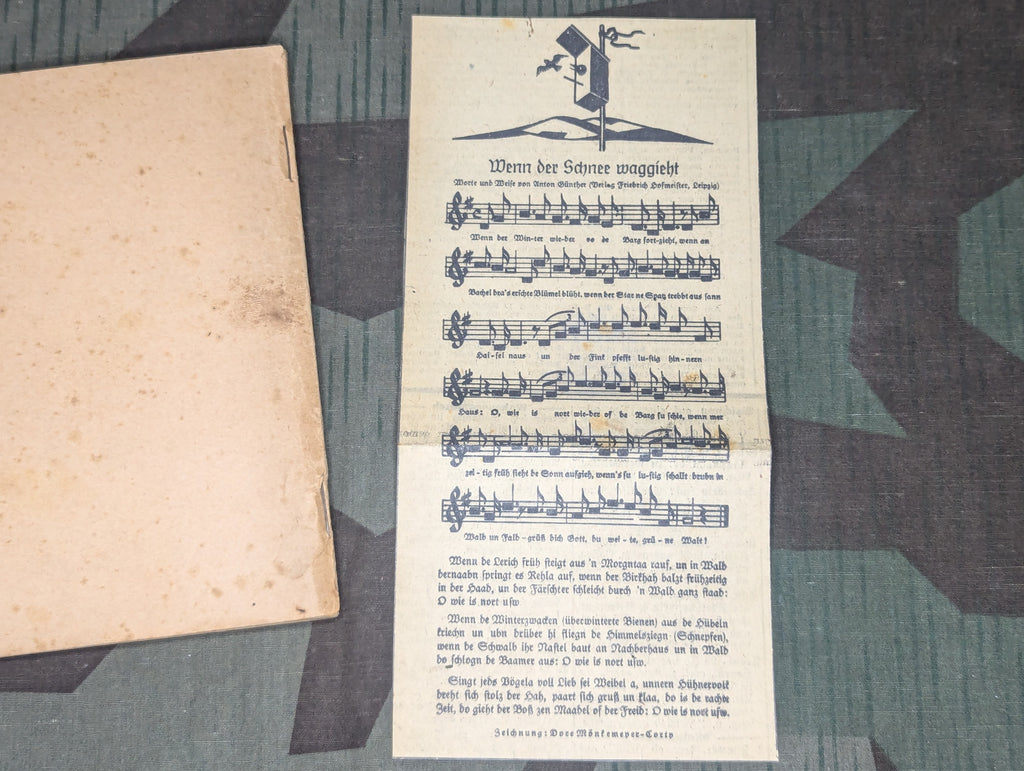 Wenn der Schnee waggieht
Worte und Weise von Anton Günther (Verlag Friedrich Hofmeister, Leipzig)
Wenn der Win-ter wie-der vo de Barg fort-zieht, wenn an
Bachel dra's erschte Blümel blüht, wenn der Star ne Spatz trebbt aus sann
Hai-sel naus un der Fink pfefft lu-stig hin-nern
Haus: O, wie is nort wie-der of de Barg su schie, wenn mer
zei-tig früh sieht de Sonn aufzieh, wenn's su lu-stig schallt drubn in
Wald un Fald-grüß dich Gott, du wei-te, grü-ne Walt!
Wenn de Lerich früh steigt aus 'n Morgntaa rauf, un in Wald
dernaabn springt es Rehla auf, wenn der Birkhah balzt frühzeitig
in der Haad, un der Färschter schleicht durch 'n Wald ganz staad:
O wie is nort usw
Wenn de Winterzwacken (überwinterte Bienen) aus de Hübeln
kriechn un ubn drüber hi fliegn de Himmelsziegn (Schnepfen),
wenn de Schwalb ihr Nastel baut an Nachberhaus un in Wald
do schlogn de Baamer aus: O wie is nort usw.
Singt jeds Vögela voll Lieb sei Weibel a, unnern Hühnervolk
dreht sich stolz der Hah, paart sich gruß un klaa, do is de rachte
Zeit, do gieht der Boß zen Maadel of der Freid: O wie is nort usw.
Zeichnung: Dore Mönkemeyer-Corty